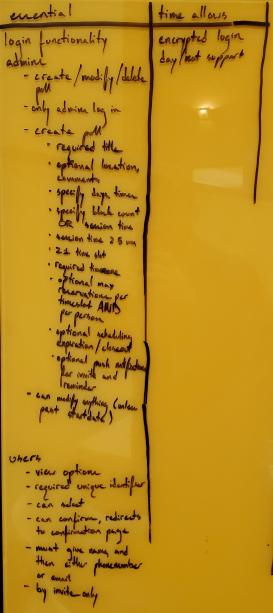 essential
login functionality
admins
- create/modify/delete
poll
- only admins log in
- create poll
• required title
• optional location,
comments
• specify days, times
• specify block count
OR session time
• session time ≥ 5 min
• ≥1 time slot
• required timezone
• optional max
reservations per
timeslot AND
per person
• optional scheduling
expiration/closeout
• optional push notifications
for invite and
reminder
- can modify anything (unless
past start date)
users
- view options
- required unique identifier
- can select
- can confirm, redirects
to confirmation page
- must give name, and
then either phone number
or email
- by invite only
time allows
encrypted login
day/not support